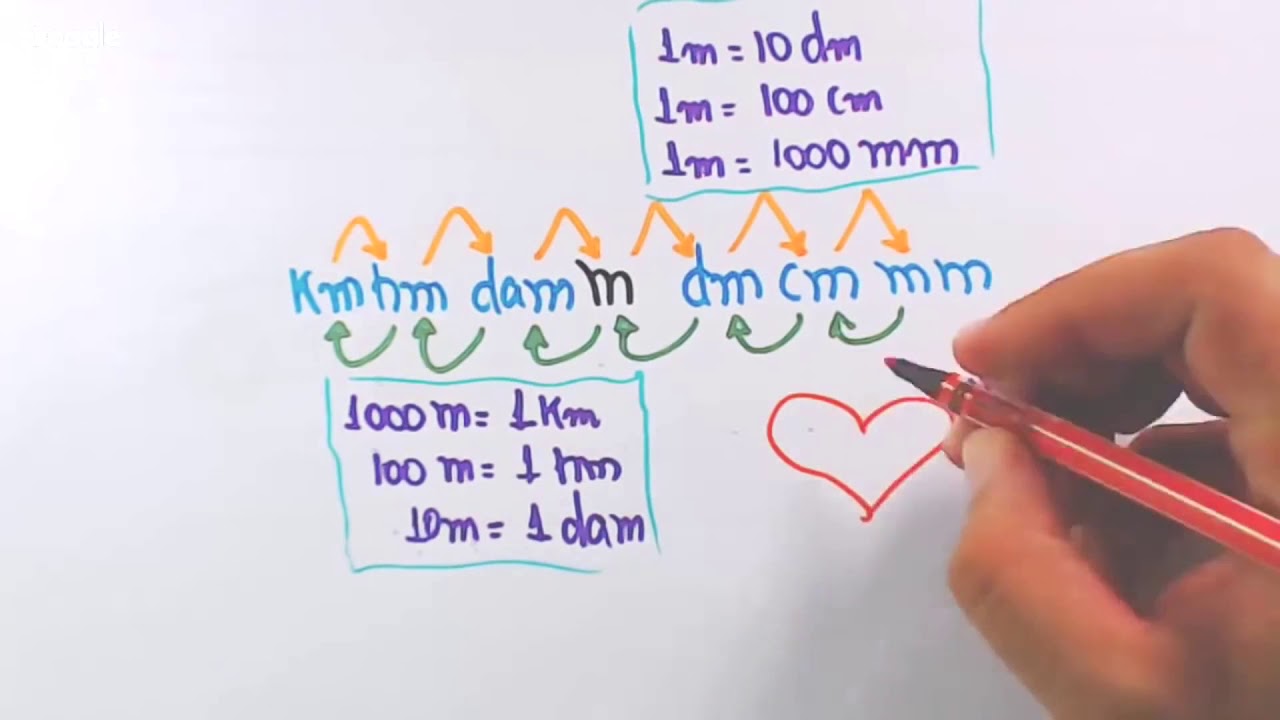 1m = 10 dm
1m = 100 cm
1m = 1000 mm
Km hm dam m dm cm mm
1000 m = 1 Km
100 m = 1 hm
10m = 1 dam